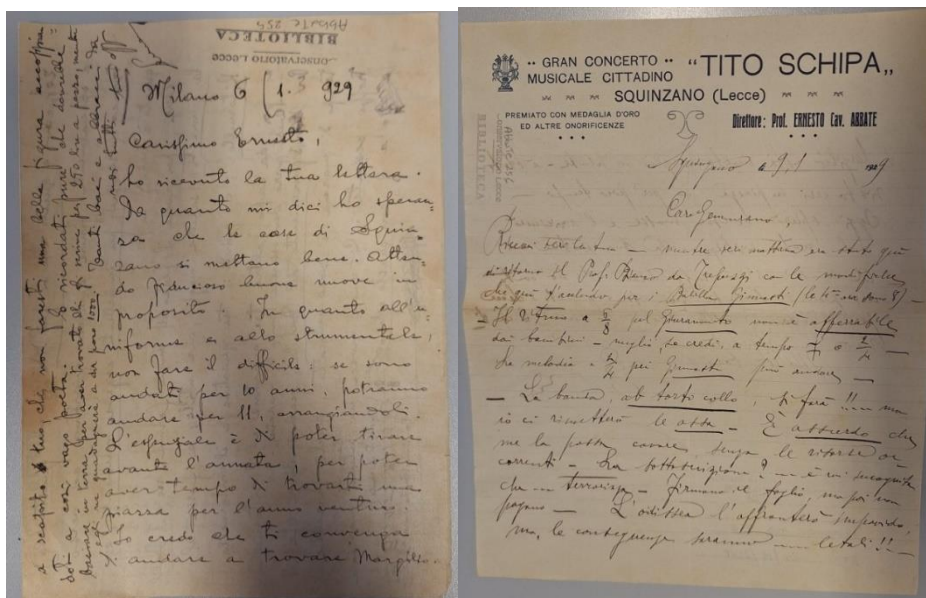 Abbate 255
BIBLIOTECA
Conservatorio Lecce
Milano 6/1. 929
Carissimo Ernesto,
ho ricevuto la tua lettera.
Da quanto mi dici ho speran=
za che le cose di Squin=
zano si mettano bene. Atten=
do fiducioso buone nuove in
proposito. In quanto all'u=
niforme e allo strumentale,
non fare il difficile: se sono
andati per 10 anni, potranno
andare per 11, arrangiandoli.
L'essenziale è di poter tirare
avanti l'annata, per poter
aver tempo di trovarti una
piazza per l'anno venturo.
Io credo che ti convenga
di andare a trovare Margilio
a scapito tuo, che non faresti una bella figura
così vago poeta.
1000
·· GRAN CONCERTO ··
MUSICALE CITTADINO
"TITO SCHIPA"
SQUINZANO (Lecce)
PREMIATO CON MEDAGLIA D'ORO
ED ALTRE ONORIFICENZE
Direttore: Prof. ERNESTO Cav. ABBATE
BIBLIOTECA
Abbate 256
Squinzano 9.1 1929
Caro Gennarano,
la tua — mentre ieri mattina era stato qui
di ritorno il Prof. da Trepuzzi con le modifiche
per i Balilla Ginnasti
Il Ritmo a 2/8 pel Giuramento non è afferrabile
dai bambini — meglio, se credi, a tempo o 2/4 —
La melodia a 2/4 pei Ginnasti può andare —
— La banda, ab torto collo, si farà!!! ma
io ci rimetterò le ossa — È assurdo che
me la possa cavare, senza le risorse oc=
correnti — La sottoscrizione? — è un'incognita
che terrorizza — Firmano il foglio, ma poi non
pagano — L'odissea l'affronterò impavido,
ma, le conseguenze saranno letali!! —